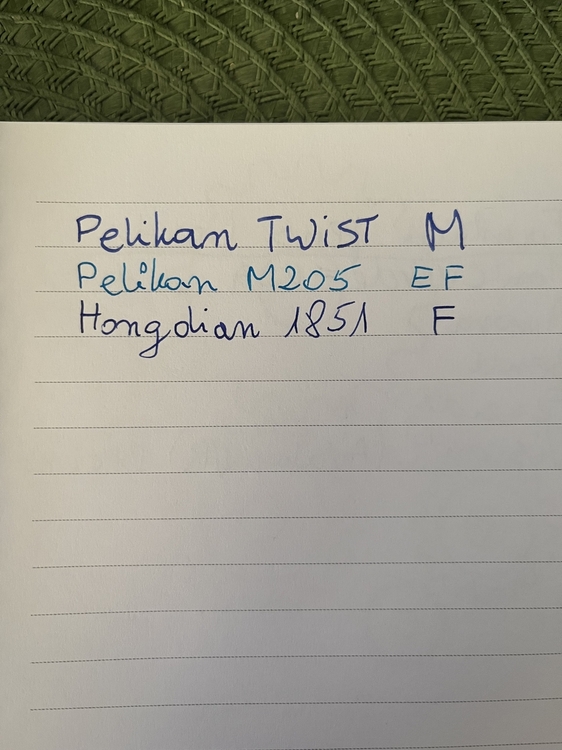 Pelikan TWiST M
Pelikan M205 EF
Hongdian 1851 F